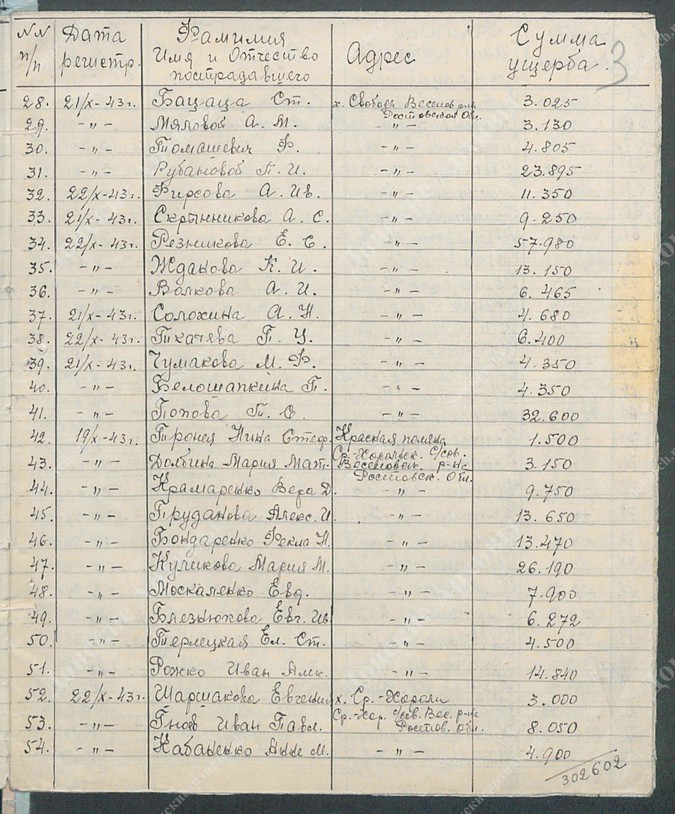 NN п/п Дата регистр. Фамилия Имя и Отчество пострадавшего Адрес Сумма ущерба. 3
28. 21/X-43г. Бацаца Ст. х. Свобода Веселов. р-на Ростовской Обл. 3.025
29. -"- Мяловой А. М. -"- 3.130
30. -"- Томашевич Ф. -"- 4.805
31. -"- Рубановой П. И. -"- 23.895
32. 22/X-43г. Фирсова А. Ив. -"- 11.350
33. 21/X-43г. Скрынникова А. С. -"- 9.250
34. 22/X-43г. Резникова Е. С. -"- 57.980
35. -"- Жданова К. И. -"- 13.150
36. -"- Волкова А. И. -"- 6.465
37. 21/X-43г. Солохина А. Н. -"- 4.680
38. 22/X-43г. Ткачева П. У. -"- 6.400
39. 21/X-43г. Чумакова М. Ф. -"- 4.350
40. -"- Белошапкина П. -"- 4.350
41. -"- Попова Т. С. -"- 32.600
42. 19/X-43г. Троная Нина Стеф. Красная поляна 1.500
Ср.-Хоральск. С/сов.
43. -"- Долбина Мария Мат. Веселовск. р-на Ростовск. Обл. 3.150
44. -"- Крамаренко Вера Д. -"- 9.750
45. -"- Труданова Алекс. И. -"- 13.650
46. -"- Бондаренко Фекла Н. -"- 13.470
47. -"- Куликова Мария М. -"- 26.190
48. -"- Москаленко Евд. -"- 7.900
49. -"- Блезнюкова Евг. Ив. -"- 6.272
50. -"- Терлецкая Ел. Ст. -"- 4.500
51. -"- Рожко Иван Алек. -"- 14.840
52. 22/X-43г. Шаршакова Евгения х. Ср.-Хороли 3.000
53. -"- Гнов Иван Павл. Ср.-Хор. с/сов. Вес. р-на Ростов. Обл. 8.050
54. -"- Кабаненко Анна М. -"- 4.900
302602